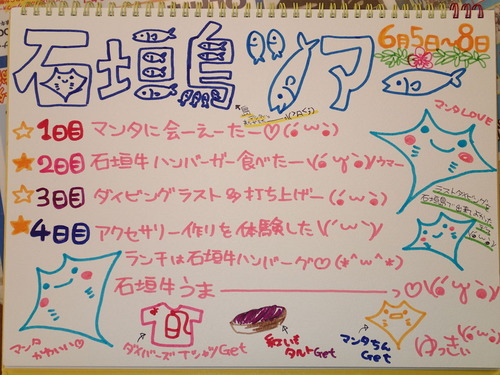 石垣島ツアー
6月5日〜8日
マンタLOVE
☆1日目 マンタに会ーえーたー♡(´ω`)
★2日目 石垣牛ハンバーガー食べたー\(´ψ`)/ウマー
☆3日目 ダイビングラスト&打ち上げー(´ω`)
★4日目 アクセサリー作りを体験した\(´ω`)/
ランチは石垣牛ハンバーグ♡(*^ω^*)
石垣牛うまーーーーーっ♡\(´ψ`)/
マンタかわいい♡
ダイバーズTシャツGet
紅いもタルトGet
マンタちんGet
ゆっきぃ(´ω`)